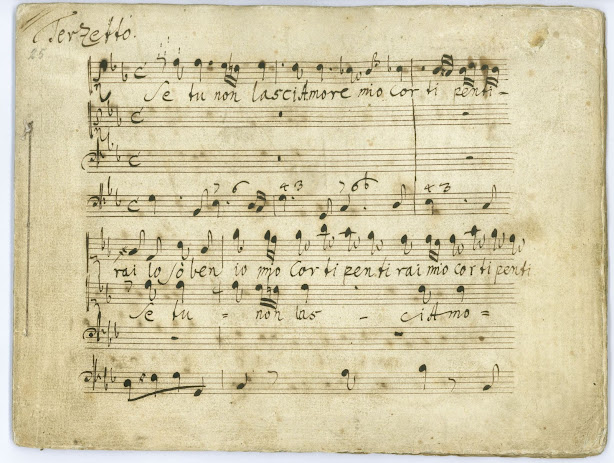 Terzetto.
25
Se tu non lasciAmore mio cor ti penti-
7 6 4 3 7 6 6 4 3
rai io sò ben io mio cor ti penti rai mio cor ti penti
Se tu - non las - ciAmo=